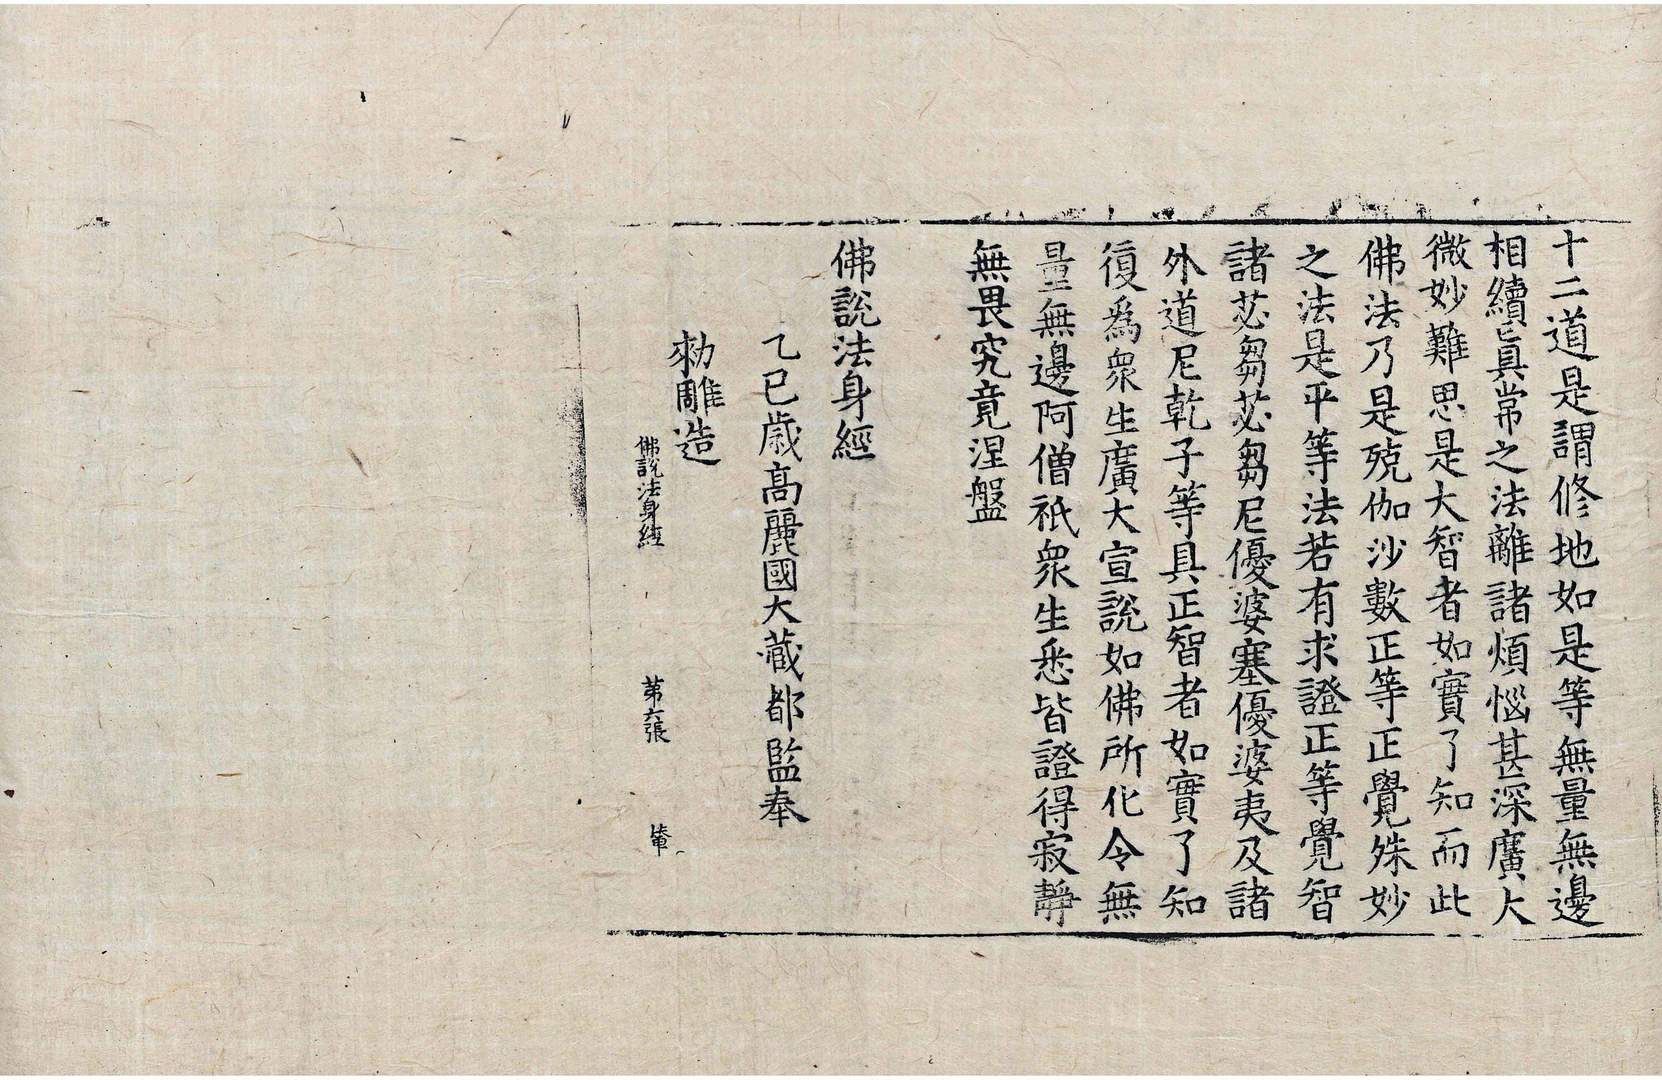 十二道是謂修地如是等無量無邊
相續眞常之法離諸煩惱甚深廣大
微妙難思是大智者如實了知而此
佛法乃是殑伽沙數正等正覺殊妙
之法是平等法若有求證正等覺智
諸苾芻苾芻尼優婆塞優婆夷及諸
外道尼乾子等具正智者如實了知
復爲衆生廣大宣說如佛所化令無
量無邊阿僧祇衆生悉皆證得寂靜
無畏究竟涅盤
佛說法身經
乙巳歲高麗國大藏都監奉
勑雕造
佛說法身經 第六張